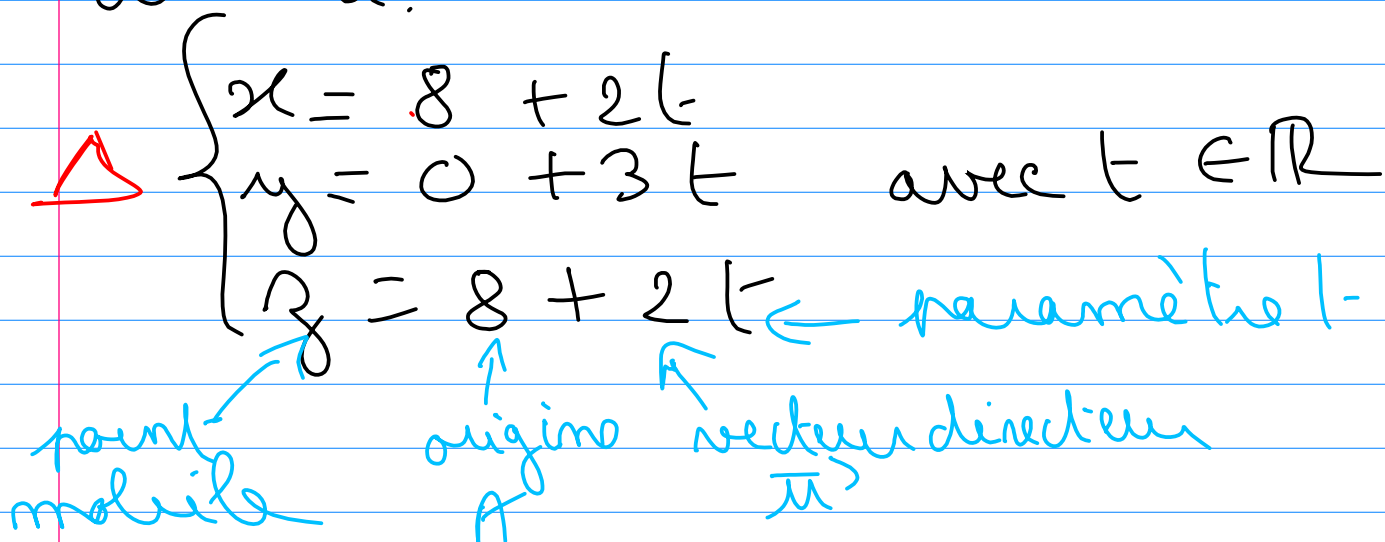 x = 8 + 2t
Δ { y = 0 + 3t avec t ∈ ℝ
z = 8 + 2t ← paramètre t
point mobile
origine A
vecteur directeur u⃗